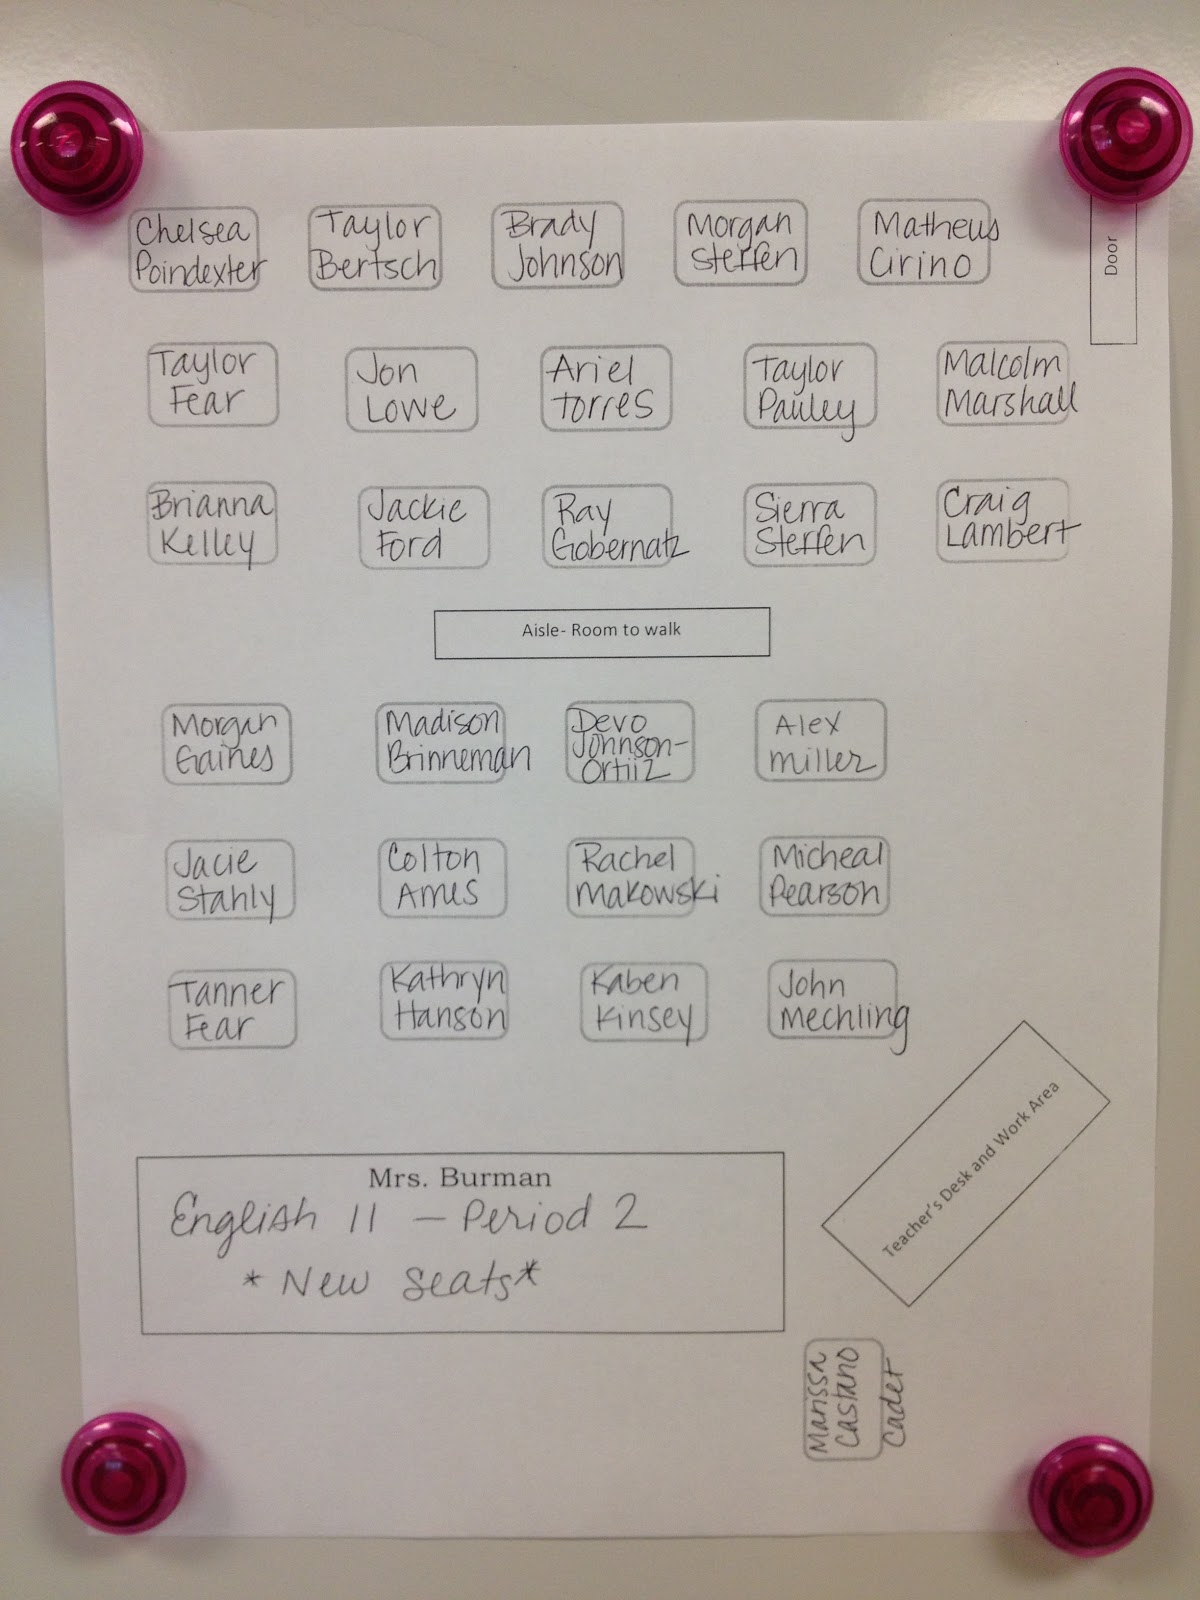 Chelsea Poindexter
Taylor Bertsch
Brady Johnson
Morgan Steffen
Matheus Cirino
Door
Taylor Fear
Jon Lowe
Ariel Torres
Taylor Pauley
Malcolm Marshall
Brianna Kelley
Jackie Ford
Ray Gobernatz
Sierra Steffen
Craig Lambert
Aisle- Room to walk
Morgan Gaines
Madison Brinneman
Devo Johnson-Ortiiz
Alex Miller
Jacie Stahly
Colton Ames
Rachel Makowski
Micheal Pearson
Tanner Fear
Kathryn Hanson
Kaben Kinsey
John Mechling
Teacher's Desk and Work Area
Mrs. Burman
English 11 – Period 2
*New seats*
Marissa Castano
Cadet